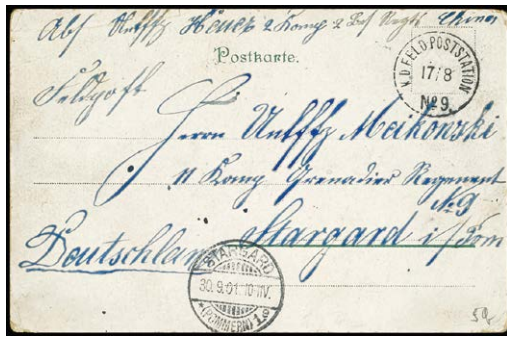 Abs Untffz Heuer 2 Komp 2 Chines
Postkarte.
K.D. FELD-POSTSTATION
17/8
№9.
Feldpost
Herrn Untffz Meikowski
11 Komp Grenadier Regiment
№ 9
Stargard i/Pom
Deutschland
STARGARD
30.9.01.10-11V.
*(POMMERN)1a